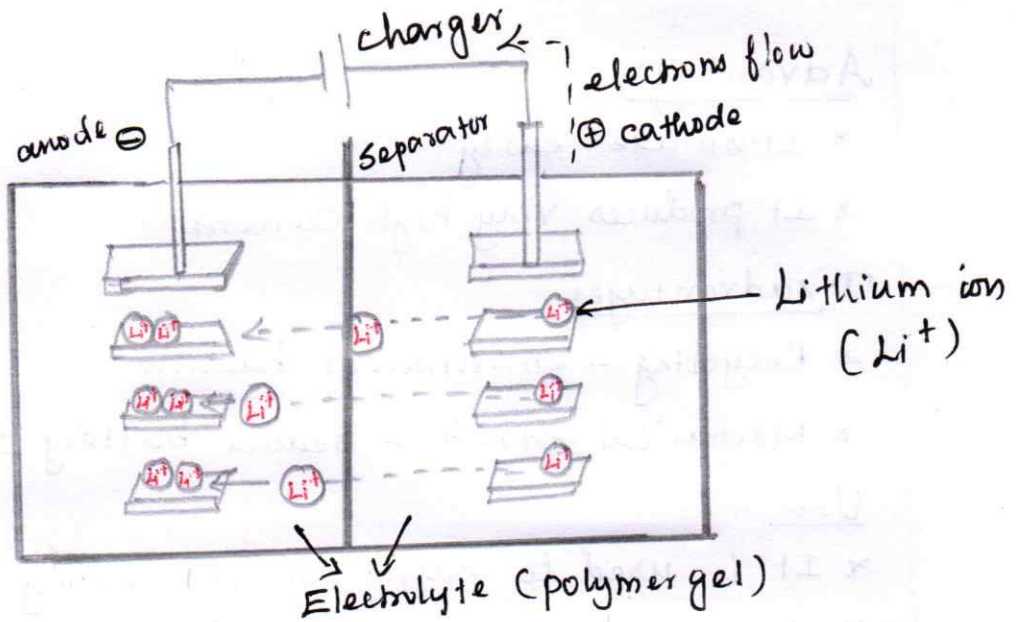 charger
electrons flow
anode ⊖
separator
⊕ cathode
Li⁺ Li⁺
Li⁺
Li⁺
Lithium ion
(Li⁺)
Li⁺ Li⁺
Li⁺
Li⁺
Li⁺ Li⁺
Li⁺
Li⁺
Electrolyte (polymer gel)